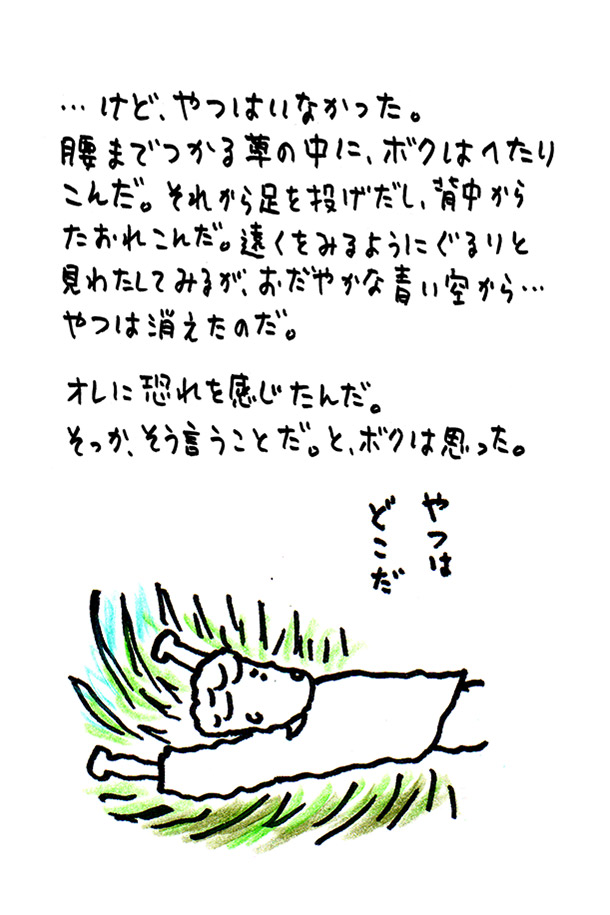 …けど、やつはいなかった。
腰までつかる草の中に、ボクはへたり
こんだ。それから足を投げだし、背中から
たおれこんだ。遠くをみるようにぐるりと
見わたしてみるが、おだやかな青い空から…
やつは消えたのだ。
オレに恐れを感じたんだ。
そっか、そう言うことだ。と、ボクは思った。
やつは
どこだ